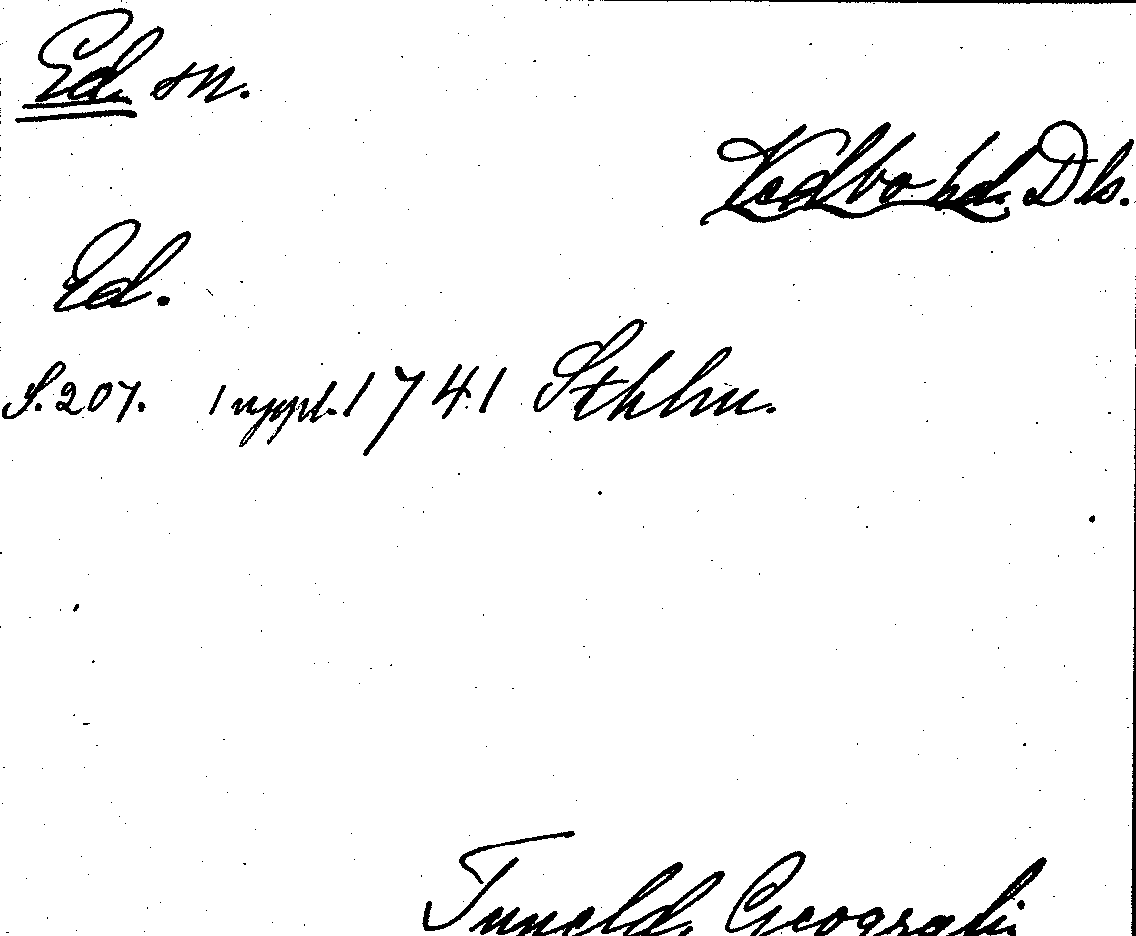 Ed sn.
Vedbo hd. Dls.
Ed.
S. 207. 1 uppl. 1741 Sthlm.
Tuneld, Geografi